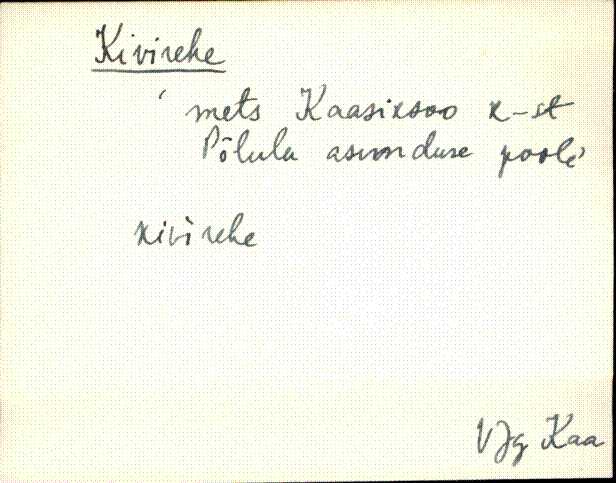 Kivirehe
‘ mets Kaasiksoo k-st
Põlula asunduse poole’
kivirehe
VJg Kaa